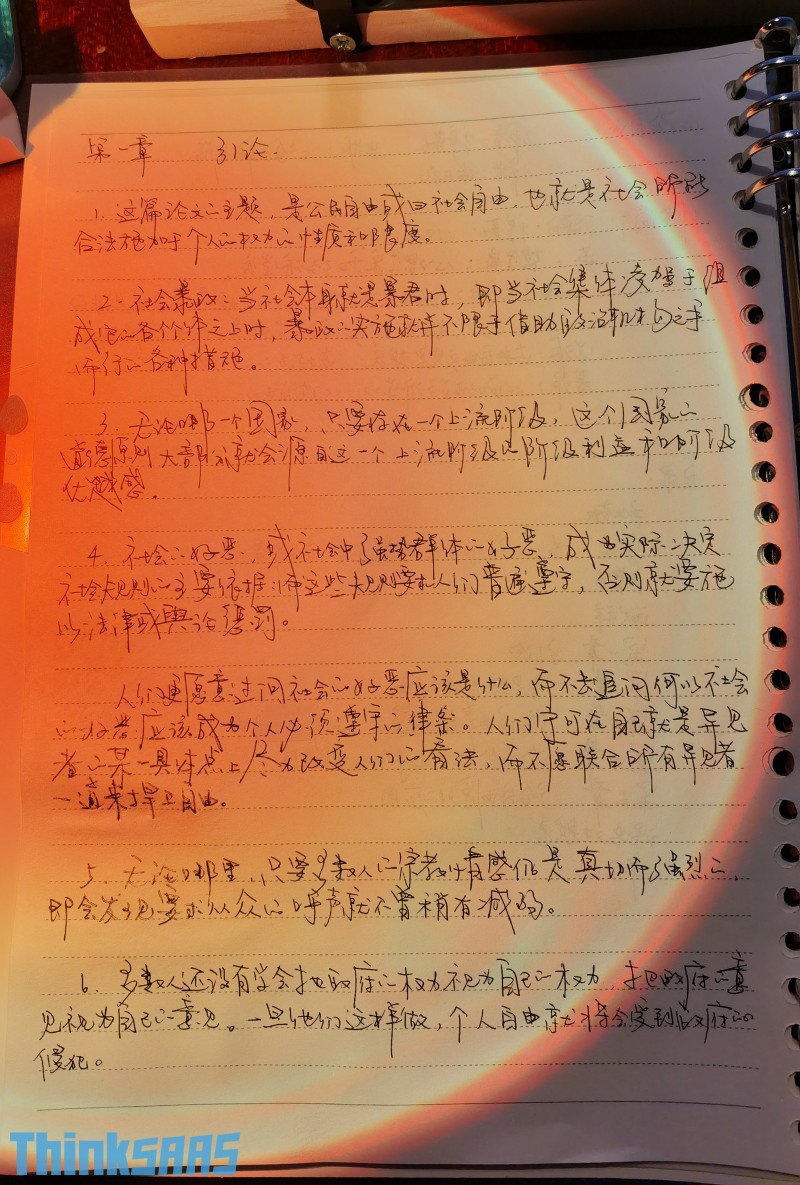 第一章 引论.
1. 这篇论文的主题，是公民自由或曰社会自由，也就是社会所能
合法施加于个人的权力的性质和限度。
2. 社会暴政：当社会本身就是暴君时，即当社会集体凌驾于组
成它的各个体之上时，暴政的实施就并不限于借助政治机构之手
而行的各种措施。
3. 无论哪一个国家，只要存在一个上流阶级，这个国家的
道德原则大部分就会源自这一个上流阶级的阶级利益和阶级
优越感。
4. 社会的好恶，或社会中强势群体的好恶，成为实际决定
社会规则的主要依据，而这些规则要求人们普遍遵守，否则就要施
以法律或舆论惩罚。
人们更愿意过问社会的好恶应该是什么，而不去追问何以社会
的好恶应该成为个人必须遵守的律条。人们宁可在自己就是异见
者的某一具体点上尽力改变人们的看法，而不愿联合所有异见者
一道来捍卫自由。
5. 无论哪里，只要多数人的宗教情感仍是真切而强烈的，
即会发现要求从众的呼声就不曾稍有减弱。
6. 多数人还没有学会把政府的权力视为自己的权力，把政府的意
见视为自己的意见。一旦他们这样做，个人自由就将会受到政府的
侵犯。
ThinkSAAS